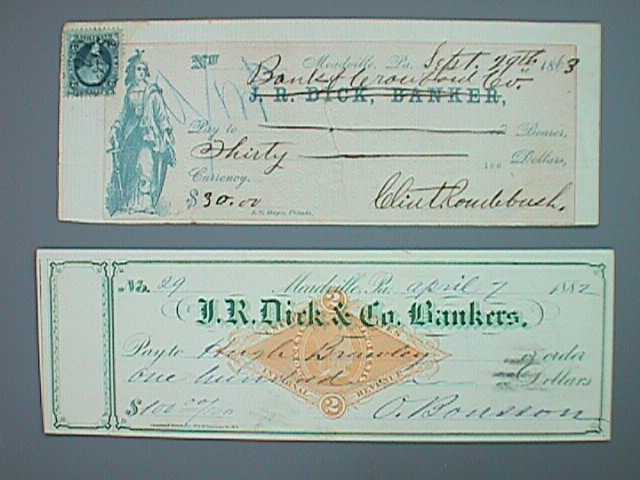 No Meadville, Pa. Sept. 29th 1863
Bank of Crawford Co.
J. R. DICK, BANKER,
Pay to or Bearer,
Thirty 100 Dollars,
Currency.
$30.00 Clint Roudebush.
No. 29 Meadville, Pa. April 7 1882
J. R. Dick & Co. Bankers.
Pay to Hugh Brawley or order
One hundred Dollars
INTERNAL REVENUE
2
2
$100 00/100 O. Bousson